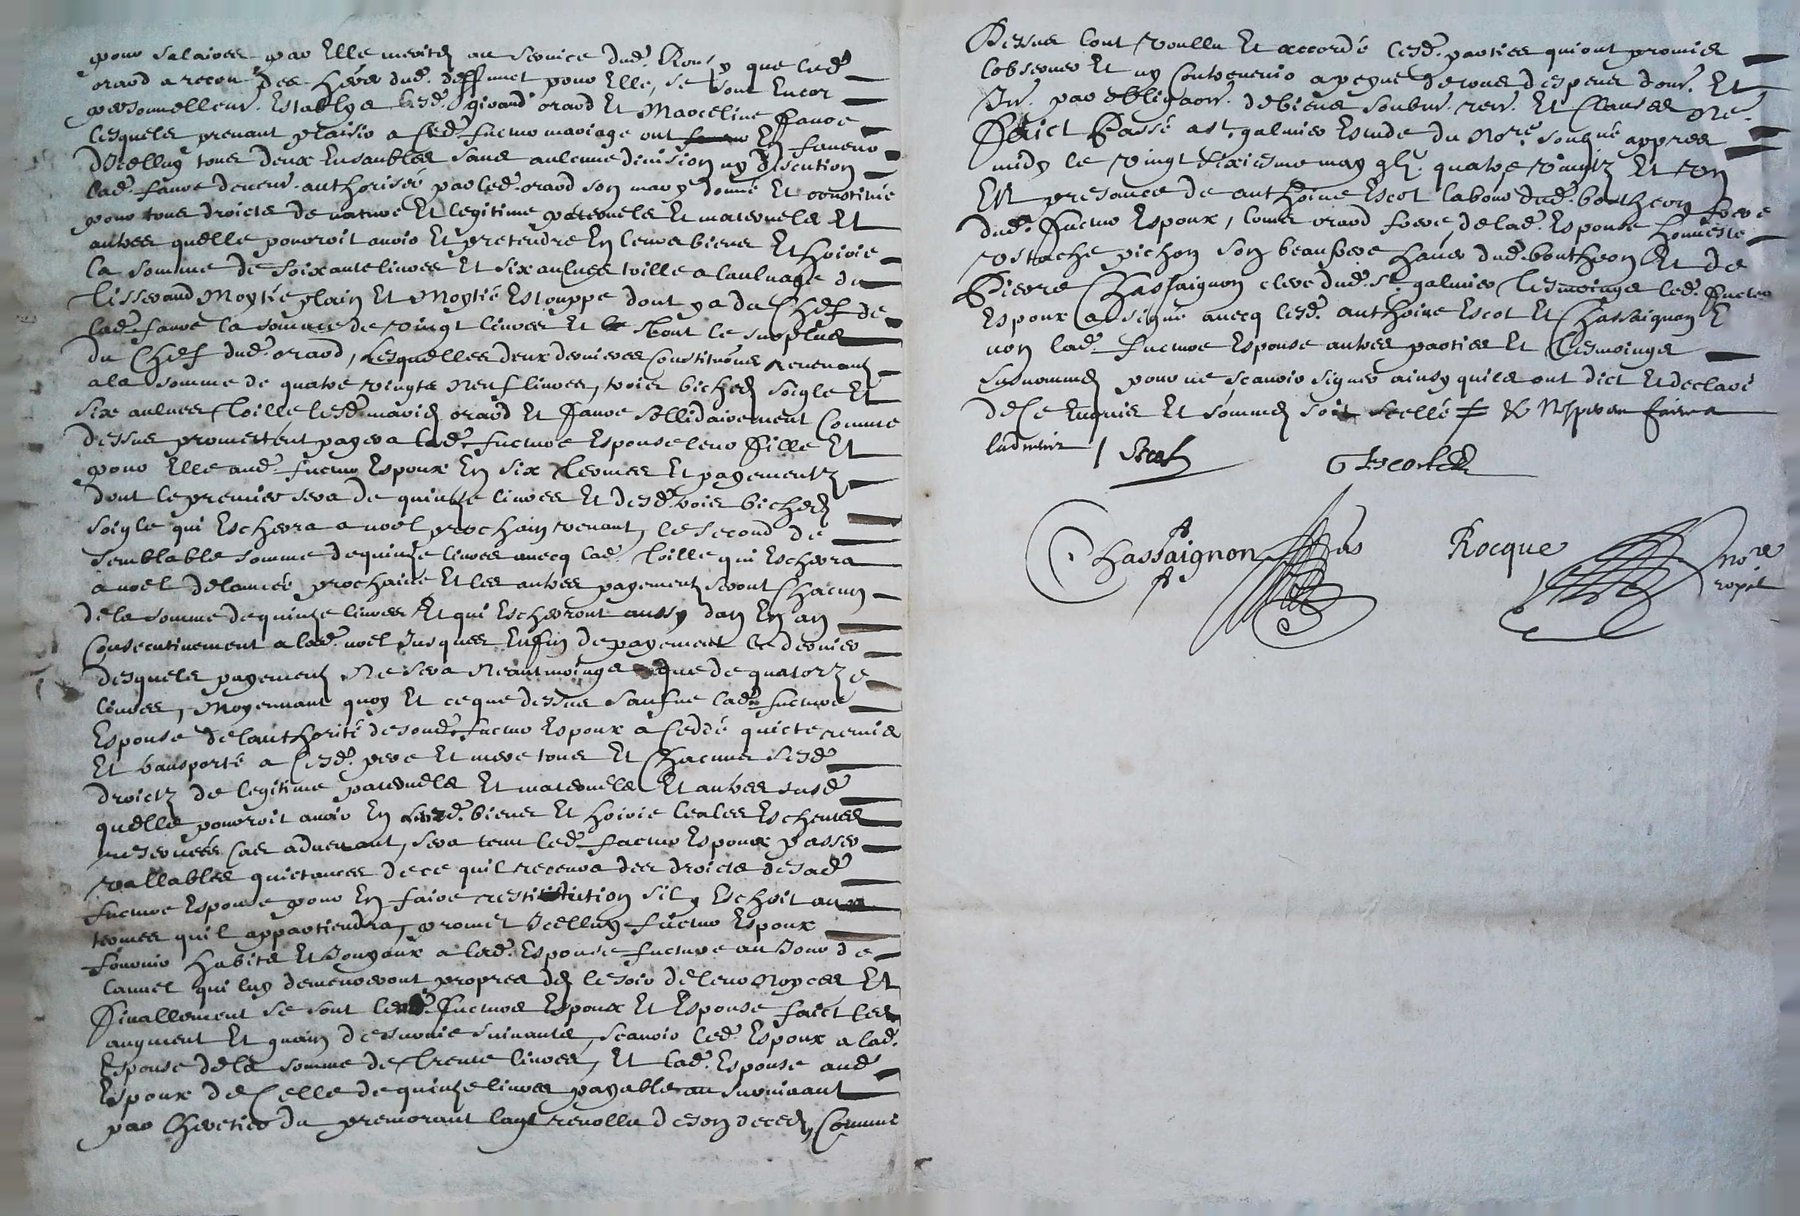 pour salaires par Elle merités au service dud. Rousy que led.
orard a receu des Hers dud. deffunct pour Elle, se sont Encor
personnellem. Establys lesd. girard orard Et Marceline faure
lesquels prenant plaisir a sed. futur mariage ont En faveur
d'Icelluy tous deux Ensambles sans aulcune division ny discution
lad. faure deuem. authorisée par led. orard son mary donné Et constitué
pour tous droicts de nature Et legitime paternels Et maternels Et
autres quelle pourroit avoir Et pretendre En leurs biens Et hoirie
la somme de soixante livres Et six aulnes toille a laulnage du
tisserand Moytié plain Et Moytié Estouppe dont y a du Chef de
lad. faure la somme de vingt livres Et tout le surplus
du Chef dud. orard, Lesquelles deux dernieres Constitu͠ons revenants
a la somme de quatre vingts Neuf livres, trois bichets soigle Et
six aulnes toille lesd. mariés orard Et faure sollidairement Comme
dessus promettent payer a lad. future Espouse leur fille Et
pour Elle aud. futur Espoux En six termes Et payements
dont le premier sera de quinze livres Et desd. trois bichets
soigle qui Eschera a noel prochain venant, le second de
semblable somme de quinze livres avecq lad. toille qui Eschera
a noel de lannée prochaine Et les autres payements seront Chacun
de la somme de quinze livres Et qui Escherront aussy dan En an
Consecutivement a lad. noel Jusques Enfin de payement le dernier
desquels payements Ne sera Neantmoings que de quatorze
livres, Moyennant quoy Et ce que dessus lad. future
Espouse de lauthorité de sond. futur Espoux a Ceddé quicté remis
Et transporté a sesd. pere Et mere tous Et Chacuns sesd.
droictz de legitime paternels Et maternels Et autres susd.
quelle pourroit avoir En leursd. biens Et hoirie leales Escheutes
reservées Cas advenant, sera tenu led. futur Espoux passer
vallables quictances de ce quil recevra des droicts de sad.
future Espouse pour En faire restitution sil y Eschoit aux
termes quil appartiendra, promet Icelluy futur Espoux
fournir habits Et Joyaux a lad. Espouse future au Jour de
lannel qui luy demeureront propres dez le soir de leur Nopces Et
finallement se sont lesd. futurs Espoux Et Espouse faict les
augment Et gaing de survie suivants, scavoir led. Espoux a lad.
Espouse de la somme de trente livres, Et lad. Espouse aud.
Espoux de Celle de quinze livres payable au survivant
par lheritier du premorant lant revollu de son deceds, Comme
Dessus lont voullu Et accordé lesd. parties qui ont promis
lobserver Et ny Contrevenir a peyne de tous despens dom. Et
Int. par obligaon. de biens soubm. ren. Et Clauses Ne.
Faict Et Passé a st galmier Estude du No.re soubné appres
midy le vingt sixiesme may gbj. quatre vingtz Et un
En presance de anthoine Escot labour dud. bontheon frere
dud. futur Espoux, Louis orard frere de lad. Espouse honneste
Ostache pichon son beaufrere dud. bontheon Et de
Pierre Chassaignon clerc dud. St. galmier tesmoings led. futur
Espoux a signé avecq lesd. anthoine Escot Et Chassaignon Et
non lad. future Espouse autres parties Et tesmoings
susnommés pour ne scavoir signer ainsy quils ont dict Et declaré
de Ce Enquis Et sommés soit scellé
Escot
G Escot
Chassaignon
Rocque no.re
royal